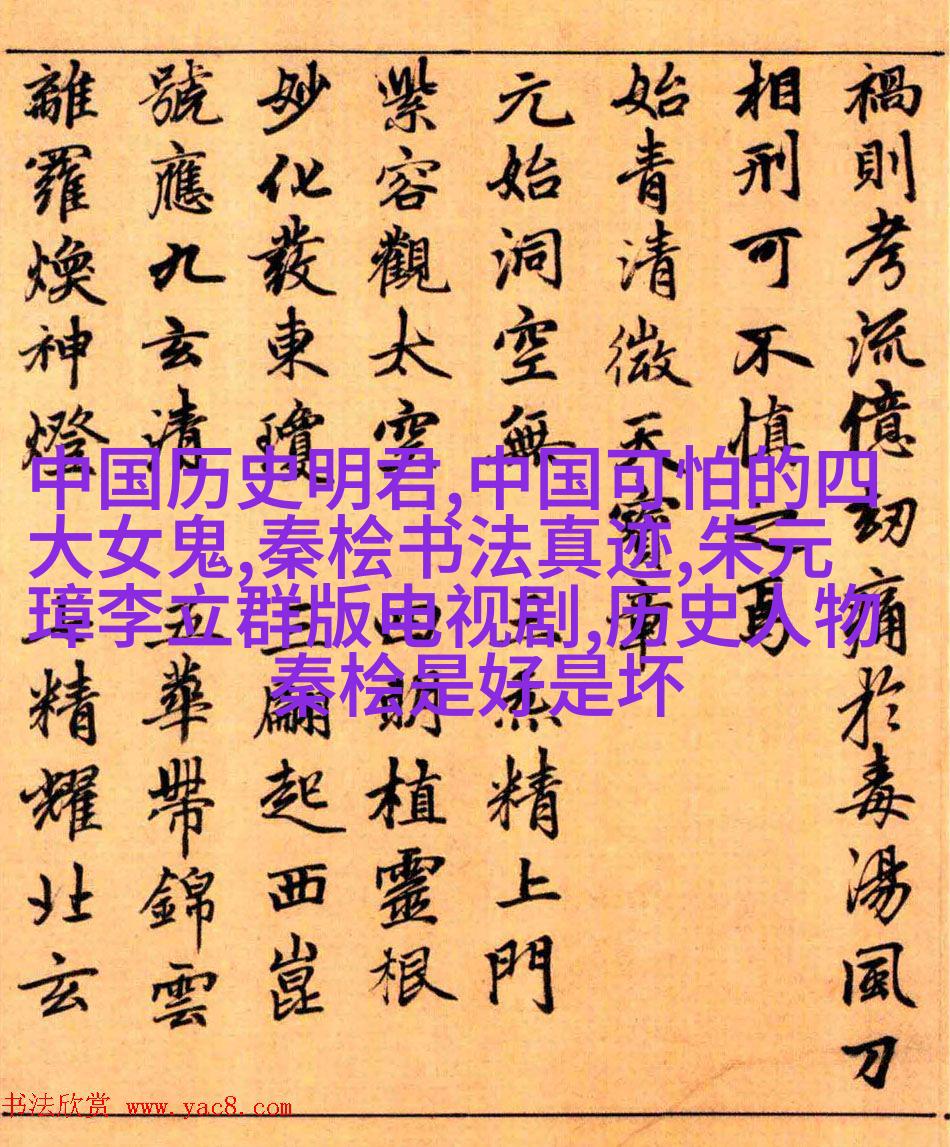 禍則考流億劫痛於毒湯風刀
相刑可不慎之
始青清微天寶章
元始洞空無炁精上門
紫容觀太空明植靈根
妙化發東瓊三翮起西崑
號應九玄清五華帶錦雲
離羅煥神燈精耀北玄
中国历史明君,中国可怕的四
大女鬼,秦桧书法真迹,朱元
璋李立群版电视剧,历史人物
秦桧是好是坏
书法欣赏 www.yac8.com